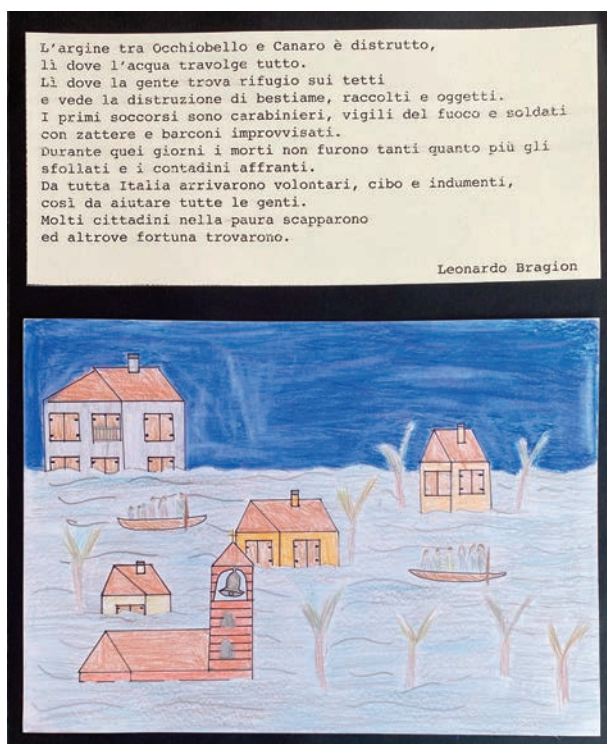 L'argine tra Occhiobello e Canaro è distrutto,
lì dove l'acqua travolge tutto.
Lì dove la gente trova rifugio sui tetti
e vede la distruzione di bestiame, raccolti e oggetti.
I primi soccorsi sono carabinieri, vigili del fuoco e soldati
con zattere e barconi improvvisati.
Durante quei giorni i morti non furono tanti quanto più gli
sfollati e i contadini affranti.
Da tutta Italia arrivarono volontari, cibo e indumenti,
così da aiutare tutte le genti.
Molti cittadini nella paura scapparono
ed altrove fortuna trovarono.
Leonardo Bragion